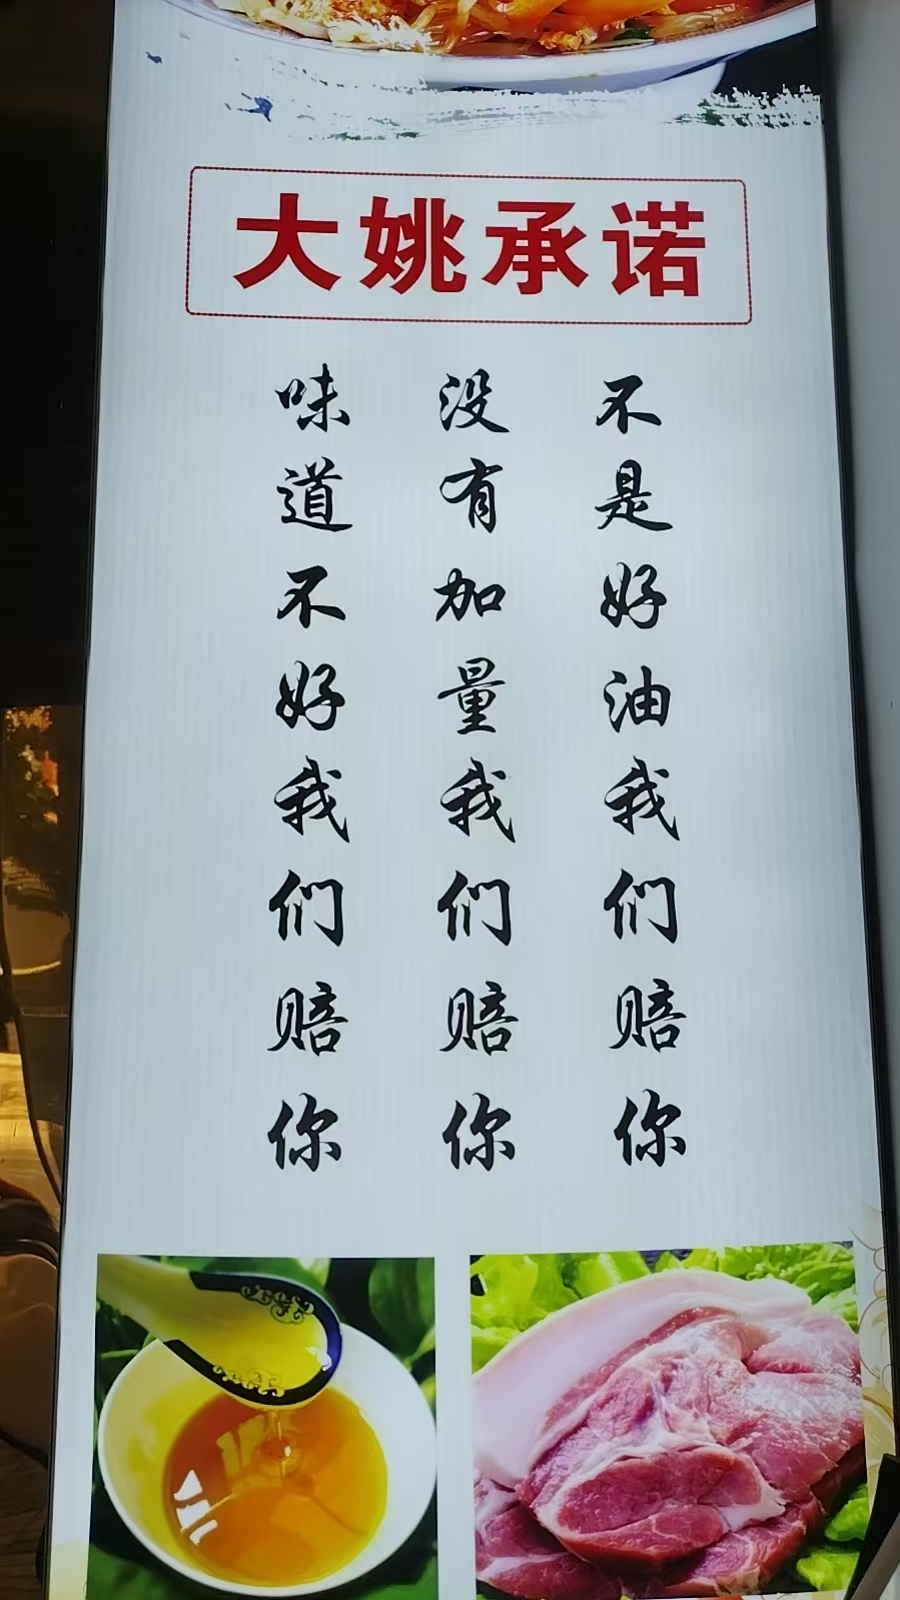 大姚承诺
不是好油我们赔你
没有加量我们赔你
味道不好我们赔你